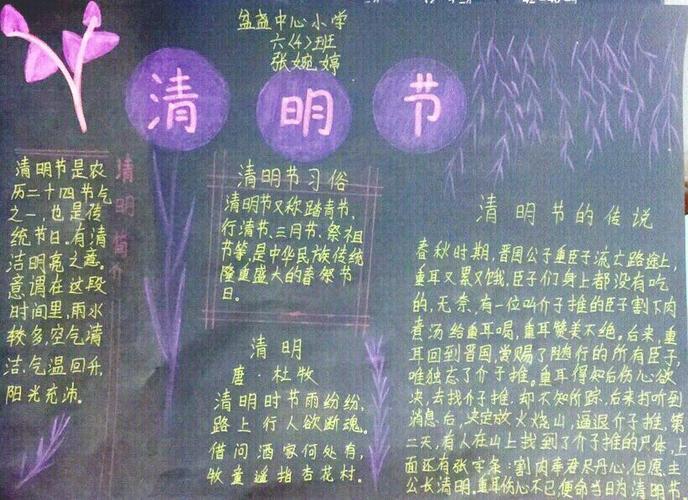 盆盏中心小学
六〈4〉班
张婉婷
清明节
清明简介
清明节是农
历二十四节气
之一,也是传
统节日。有清
洁明亮之意。
意谓在这段
时间里,雨水
较多,空气清
洁、气温回升,
阳光充沛。
清明节习俗
清明节又称踏青节、
行清节、三月节、祭祖
节等,是中华民族传统
隆重盛大的春祭节
日。
清明
唐·杜牧
清明时节雨纷纷,
路上行人欲断魂。
借问酒家何处有,
牧童遥指杏花村。
清明节的传说
春秋时期,晋国公子重臣子流亡路途上,
重耳又累又饿,臣子们身上都没有吃
的,无奈,有一位叫介子推的臣子割下肉
煮汤给重耳喝,重耳赞美不绝。后来,重
耳回到晋国,赏赐了随行的所有臣子,
唯独忘了介子推。重耳得知后伤心欲
决,去找介子推,却不知所踪,后来打听到
消息后,决定放火烧山,逼退介子推,第
二天,有人在山上找到了介子推的尸体,上
面还有张字条:割肉奉君尽丹心,但愿主
公长清明。重耳伤心不已,便命当日为清明节